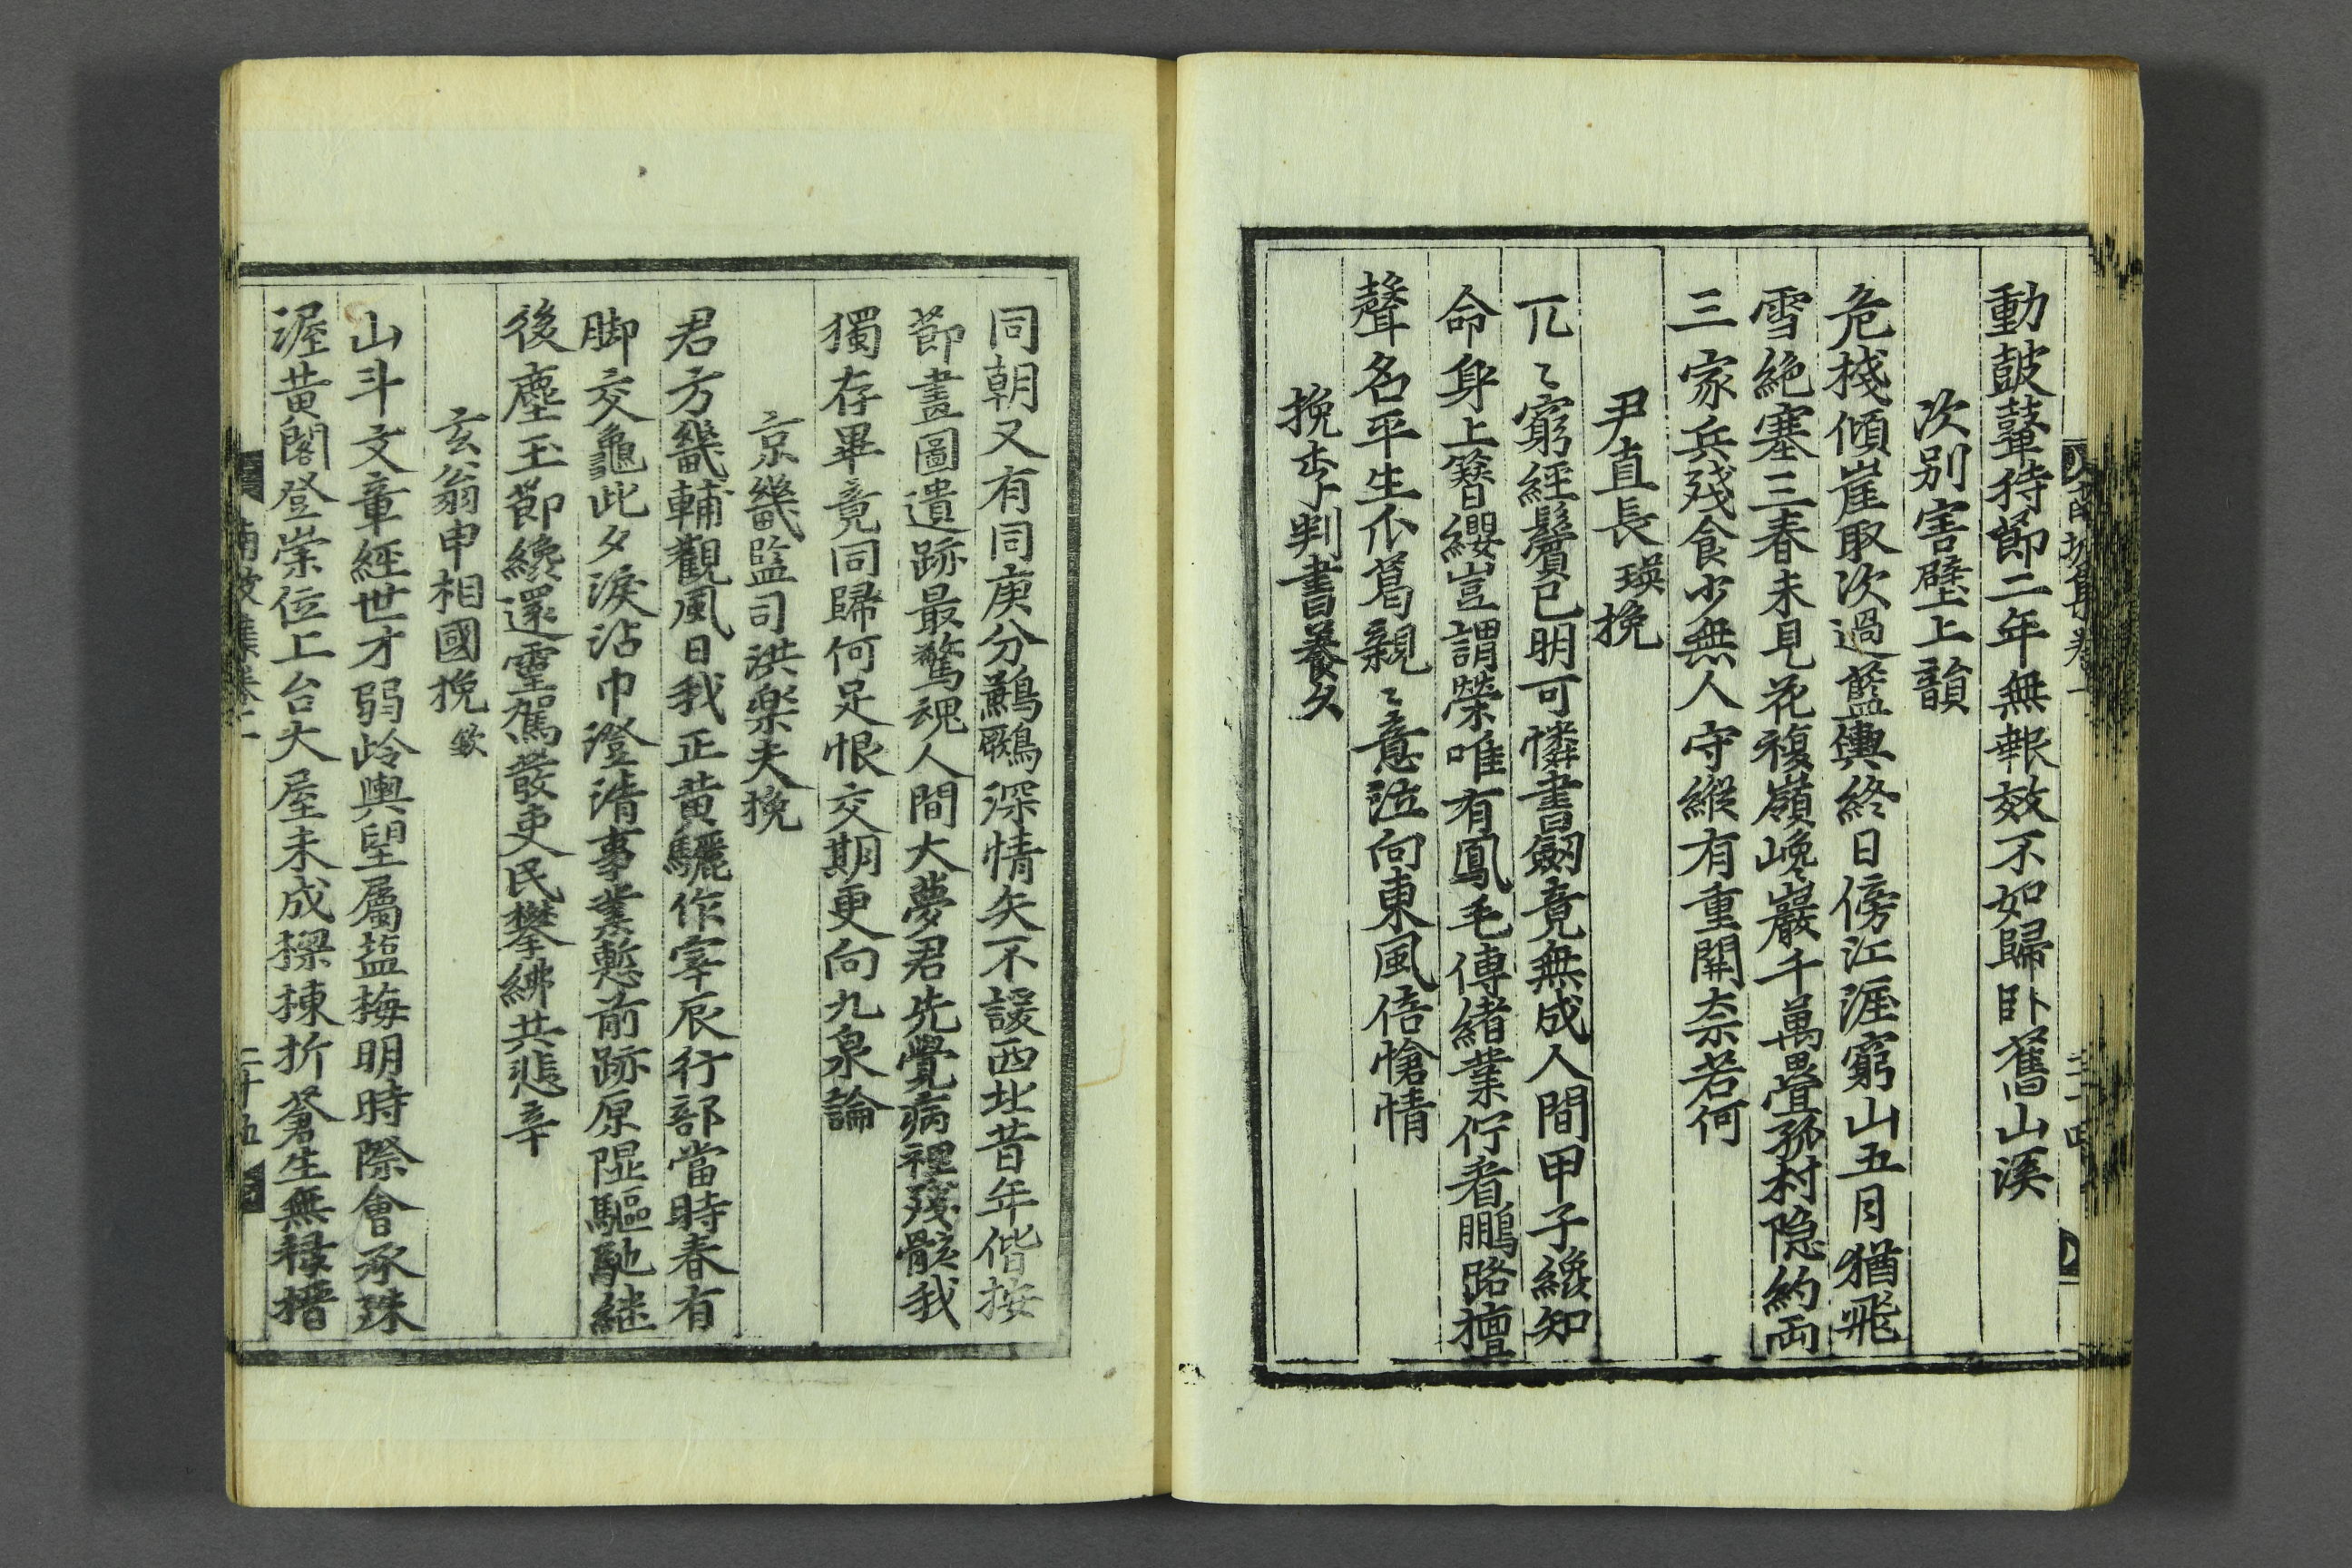 動鼓鼙待節二年無報效不如歸卧舊山溪
次別害壁上韻
危棧傾崖取次過藍輿終日傍江涯窮山五月猶飛
雪絶塞三春未見花複嶺巉巖千萬疊孤村隐約両
三家兵殘食少無人守縱有重關奈若何
尹直長瑛挽
兀〻窮經鬢已明可憐書劒竟無成人間甲子纔知
命身上簪纓豈謂榮唯有鳳毛傳緒業佇看鵬路擅
聲名平生尒葛親〻意泣向東風倍愴情
挽李判書養久
同朝又有同庚分鷞鷴深情矢不諼西北昔年偕按
節畫圖遺跡最驚魂人間大夢君先覺病裡殘骸我
獨存畢竟同歸何足恨交期更向九泉論
京畿監司洪樂夫挽
君方畿輔觀風日我正黃驪作宰辰行部當時春有
脚交龜此夕淚沾巾澄清事業慙前跡原隰驅馳継
後塵玉節纔還靈駕發吏民攀紼共悲辛
玄翁申相國挽 欽
山斗文章經世才弱岭輿望屬盐梅明時際會承殊
渥黃閣登崇位上台大厦未成樑棟折蒼生無祿搢
二十五